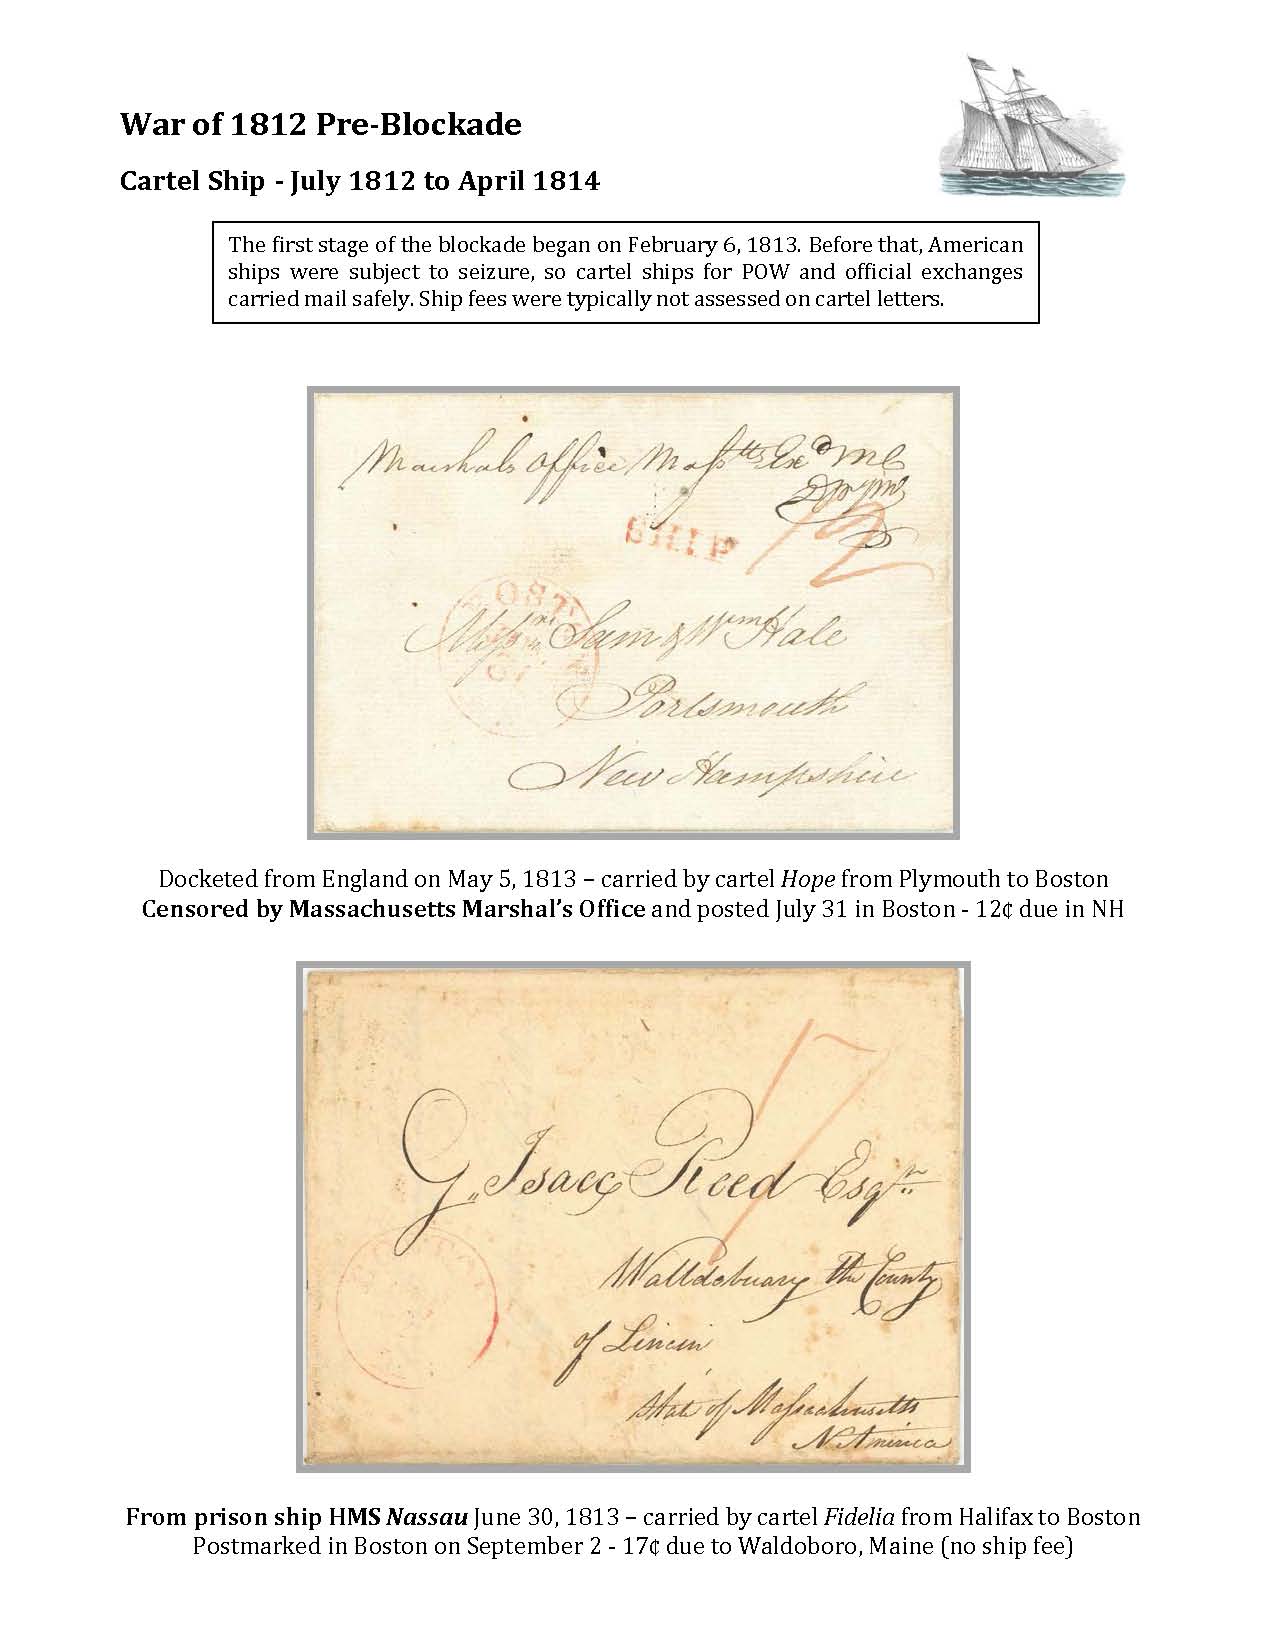 War of 1812 Pre-Blockade
Cartel Ship - July 1812 to April 1814
The first stage of the blockade began on February 6, 1813. Before that, American
ships were subject to seizure, so cartel ships for POW and official exchanges
carried mail safely. Ship fees were typically not assessed on cartel letters.
Marshals Office Masstts Exd
SHIP
12
Sam & Wm Hale
Portsmouth
New Hampshire
Docketed from England on May 5, 1813 – carried by cartel Hope from Plymouth to Boston
Censored by Massachusetts Marshal's Office and posted July 31 in Boston - 12¢ due in NH
17
Isacc Reed Esqr
Walldobuary the County
of Lincin
State of Massachusetts
N. America
From prison ship HMS Nassau June 30, 1813 – carried by cartel Fidelia from Halifax to Boston
Postmarked in Boston on September 2 - 17¢ due to Waldoboro, Maine (no ship fee)